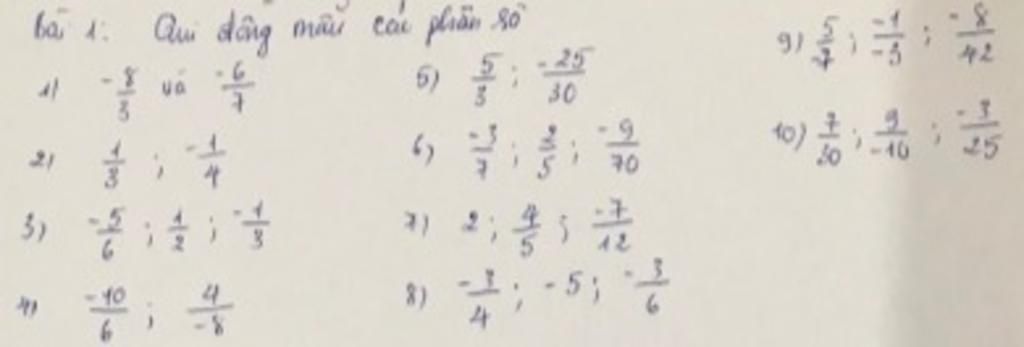 bài 1: Qui đồng mẫu các phân số
1) -8/3 và -6/7
2) 1/3 ; -1/4
3) -5/6 ; 1/2 ; -1/3
4) -10/6 ; 4/-8
5) 5/3 ; -25/30
6) -3/7 ; 2/5 ; -9/70
7) 2 ; 4/5 ; -7/12
8) -3/4 ; -5 ; -3/6
9) 5/7 ; -1/-3 ; -8/42
10) 7/20 ; 9/-10 ; -3/25